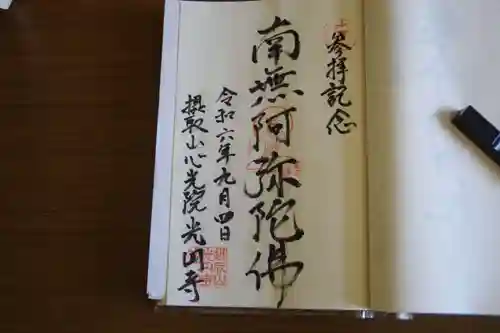 参拝記念
南無阿弥陀佛
令和六年九月四日
摂取山心光院光円寺